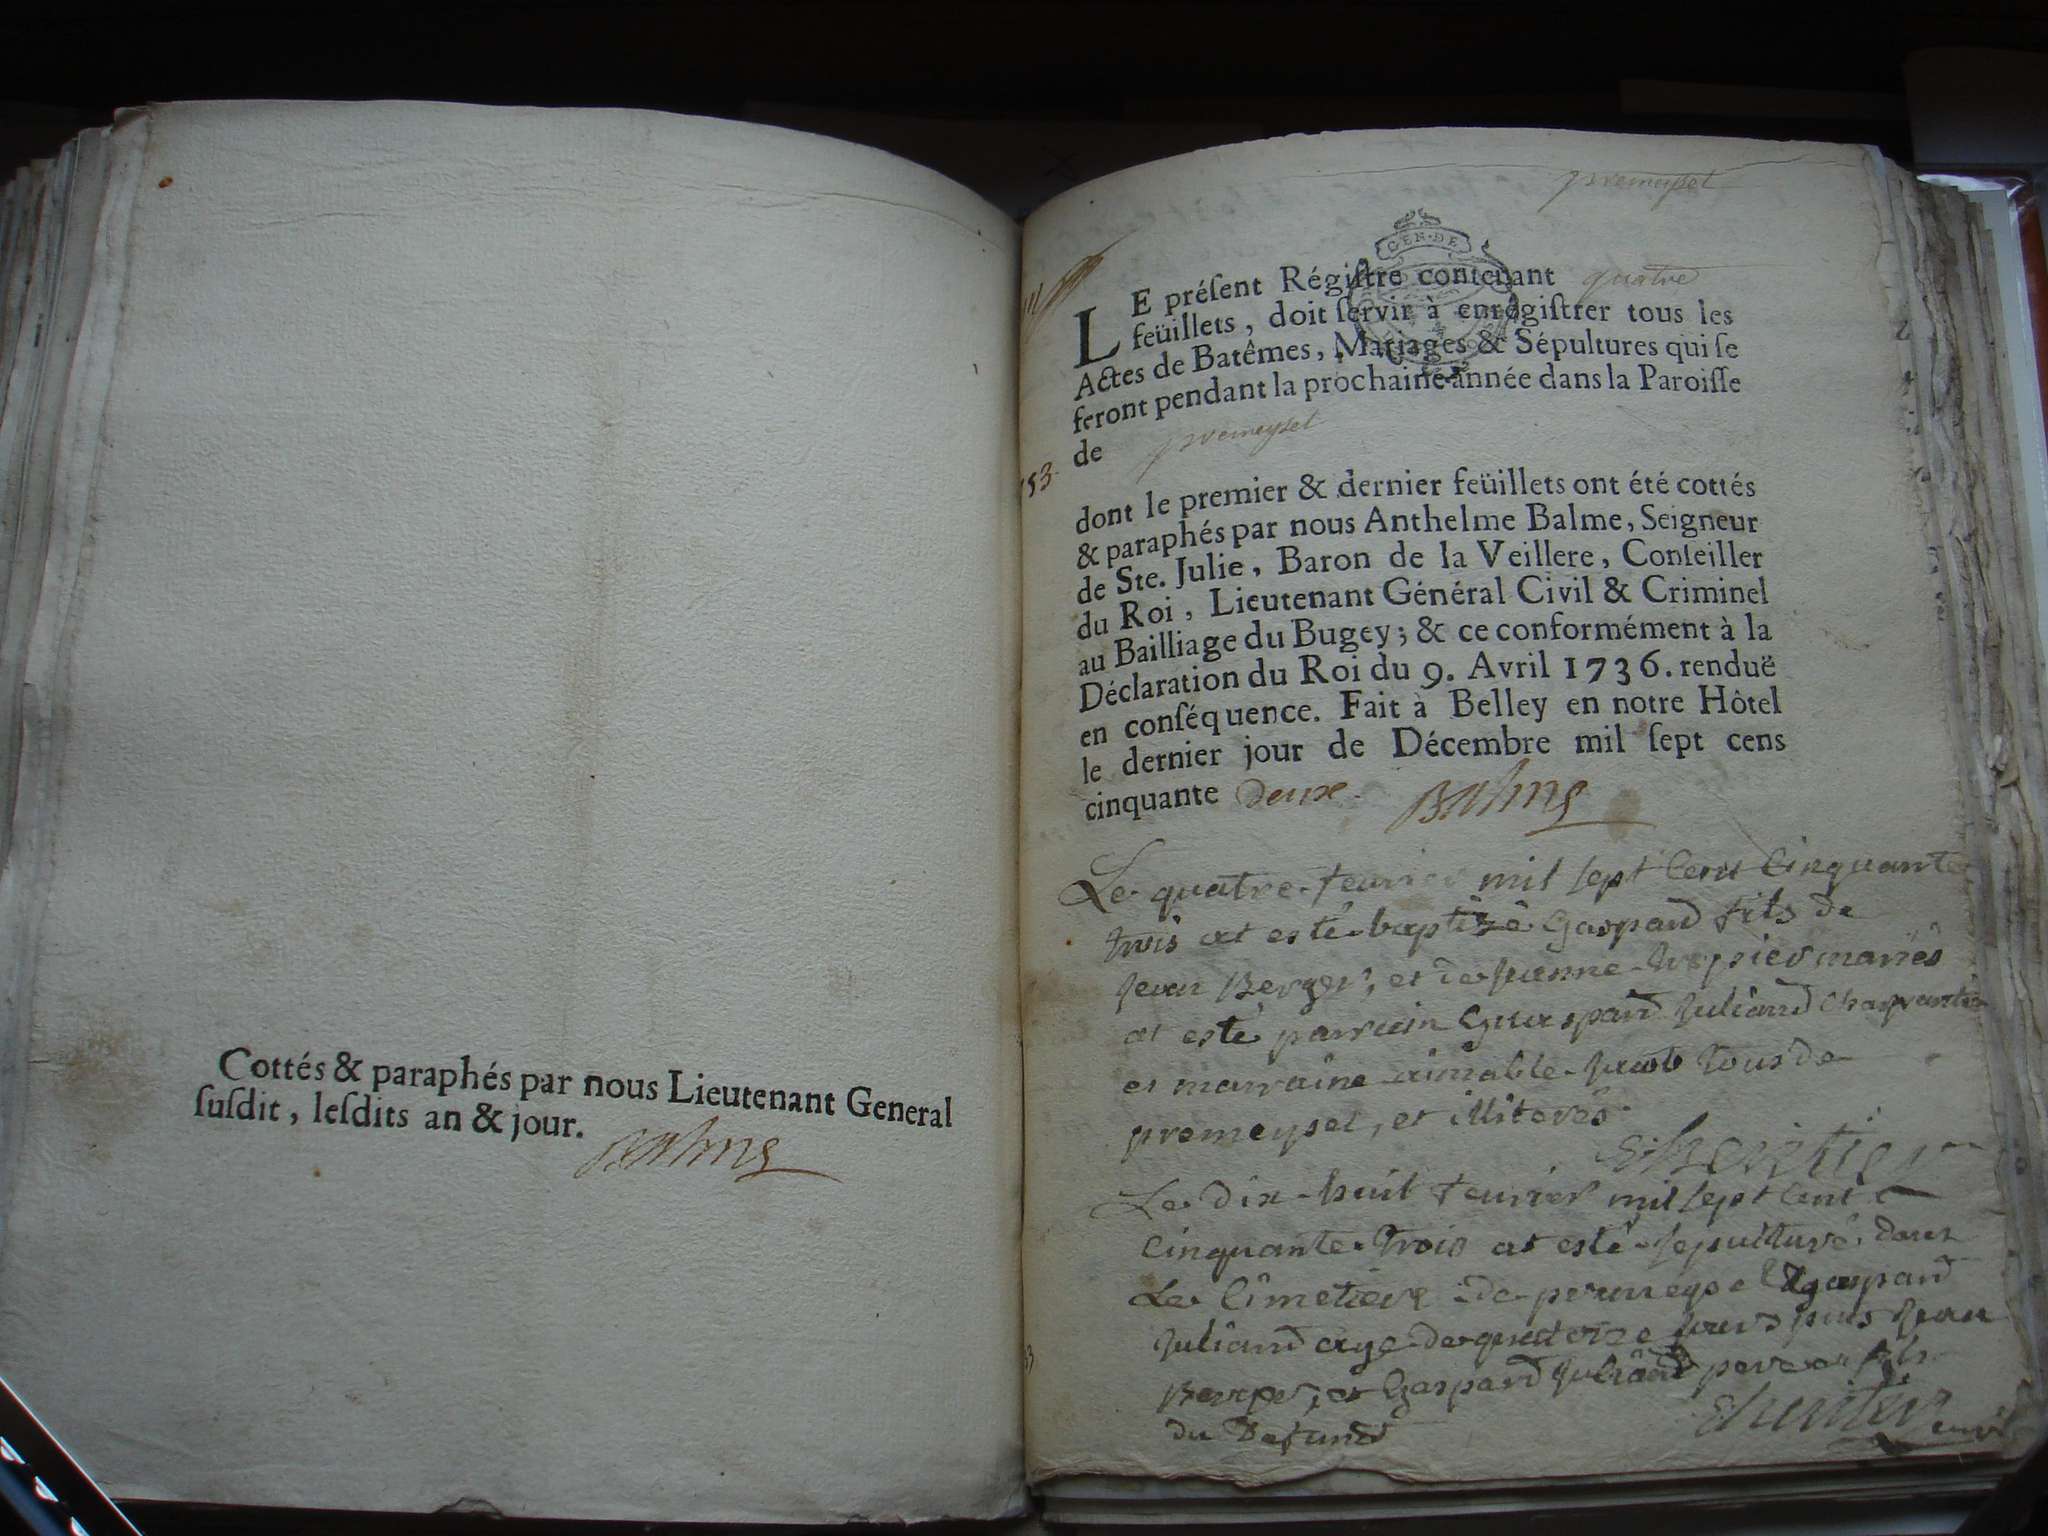 Cottés & paraphés par nous Lieutenant General
ſuſdit, leſdits an & jour. Balme
premeysel
GEN·DE
LE préſent Régiſtre contenant quatre
feüillets, doit ſervir à enrégiſtrer tous les
Actes de Batêmes, Mariages & Sépultures qui ſe
feront pendant la prochaine année dans la Paroiſſe
de premeysel
53
dont le premier & dernier feüillets ont été cottés
& paraphés par nous Anthelme Balme, Seigneur
de Ste. Julie, Baron de la Veillere, Conſeiller
du Roi, Lieutenant Général Civil & Criminel
au Bailliage du Bugey; & ce conformément à la
Déclaration du Roi du 9. Avril 1736. renduë
en conſéquence. Fait à Belley en notre Hôtel
le dernier jour de Décembre mil ſept cens
cinquante deux. Balme
Le quatre feurier mil sept Cent Cinquante
trois at esté baptizé Gaspard fils de
Jean Berger, et de Jeanne mariés
at esté parrain Guaspard Juliand Charpantier
et marraine aimable tous de
premeysel, et illiterés
Le dix-huit feurier mil sept Cent
Cinquante trois at esté sepulturé dans
Le Cimetiere de premeysel gaspard
Juliand age de quatorze jours Jean
Berger, et Gaspard Juliand pere et fils
du Defunct